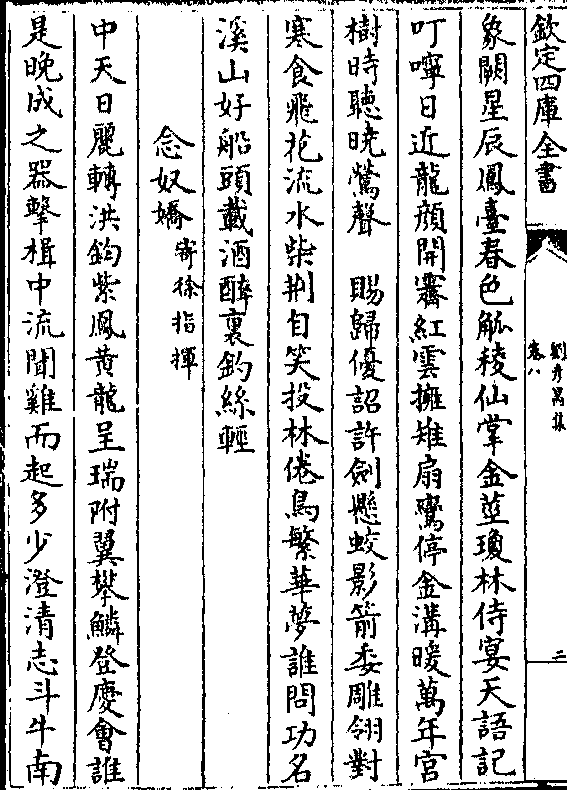 欽定四庫全書
劉彥昺集
卷八
二
象闕星辰鳳臺春色觚稜仙掌金莖瓊林侍宴天語記
叮嚀日近龍顔開霽紅雲擁雉扇鸞停金溝暖萬年宮
樹時聽曉鶯聲　賜歸優詔許劍懸蛟影箭委雕翎對
寒食飛花流水柴荆自笑投林倦鳥繁華夢誰問功名
溪山好船頭載酒醉裏釣絲輕
念奴嬌寄徐指揮
中天日麗轉洪鈞紫鳳黄龍呈瑞附翼攀鱗登慶會誰
是晚成之器擊楫中流聞雞而起多少澄清志斗牛南